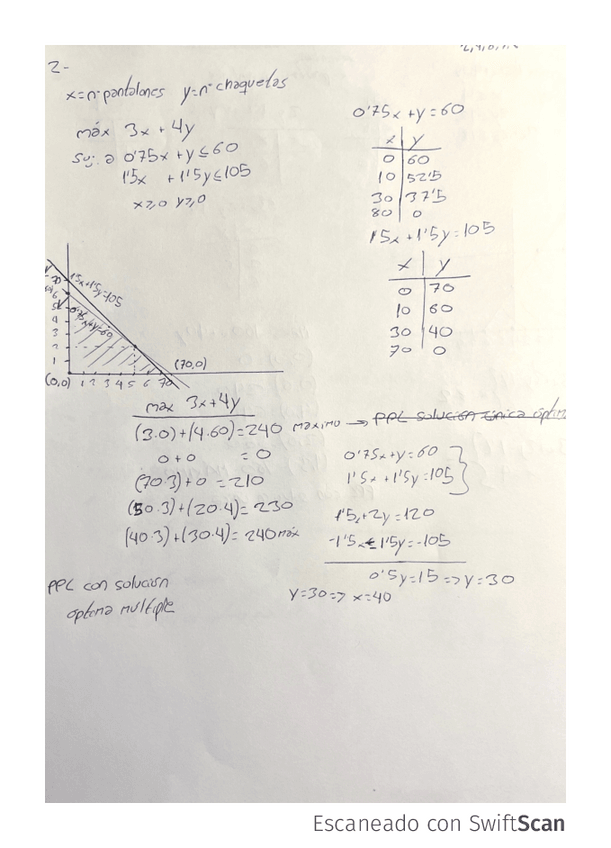 2-
x=nº pantalones y=nº chaquetas
máx 3x + 4y
Suj. a 0'75x + y ≤ 60
1'5x + 1'5y ≤ 105
x ≥ 0 y ≥ 0
0'75x + y = 60
x | y
0 | 60
10 | 52'5
30 | 37'5
80 | 0
1'5x + 1'5y = 105
x | y
0 | 70
10 | 60
30 | 40
70 | 0
1'5x+1'5y=105
0'75x+y=60
70
6
5
4
3
2
1
(0,0) 1 2 3 4 5 6 70
(70,0)
max 3x+4y
(3.0)+(4.60)=240 máximo → PPL solución única óptima
0+0 = 0
(70.3)+0 = 210
(50.3)+(20.4) = 230
(40.3)+(30.4) = 240 máx
0'75x+y=60
1'5x+1'5y=105
1'5x+2y=120
-1'5x-1'5y=-105
0'5y=15 => y=30
y=30 => x=40
PPL con solución
óptima multiple
Escaneado con SwiftScan